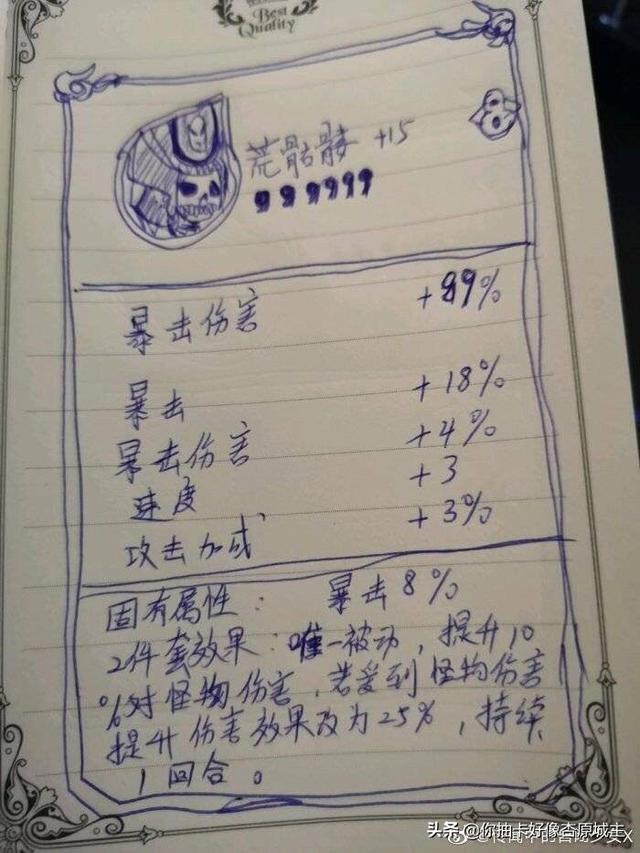 Best
Quality
荒骷髅 +15
暴击伤害 +89%
暴击 +18%
暴击伤害 +4%
速度 +3
攻击加成 +3%
固有属性: 暴击8%
2件套效果:唯一被动,提升10
%对怪物伤害,若受到怪物伤害
提升伤害效果改为25%,持续
1回合。
头条 @你抽卡好像杏原城主